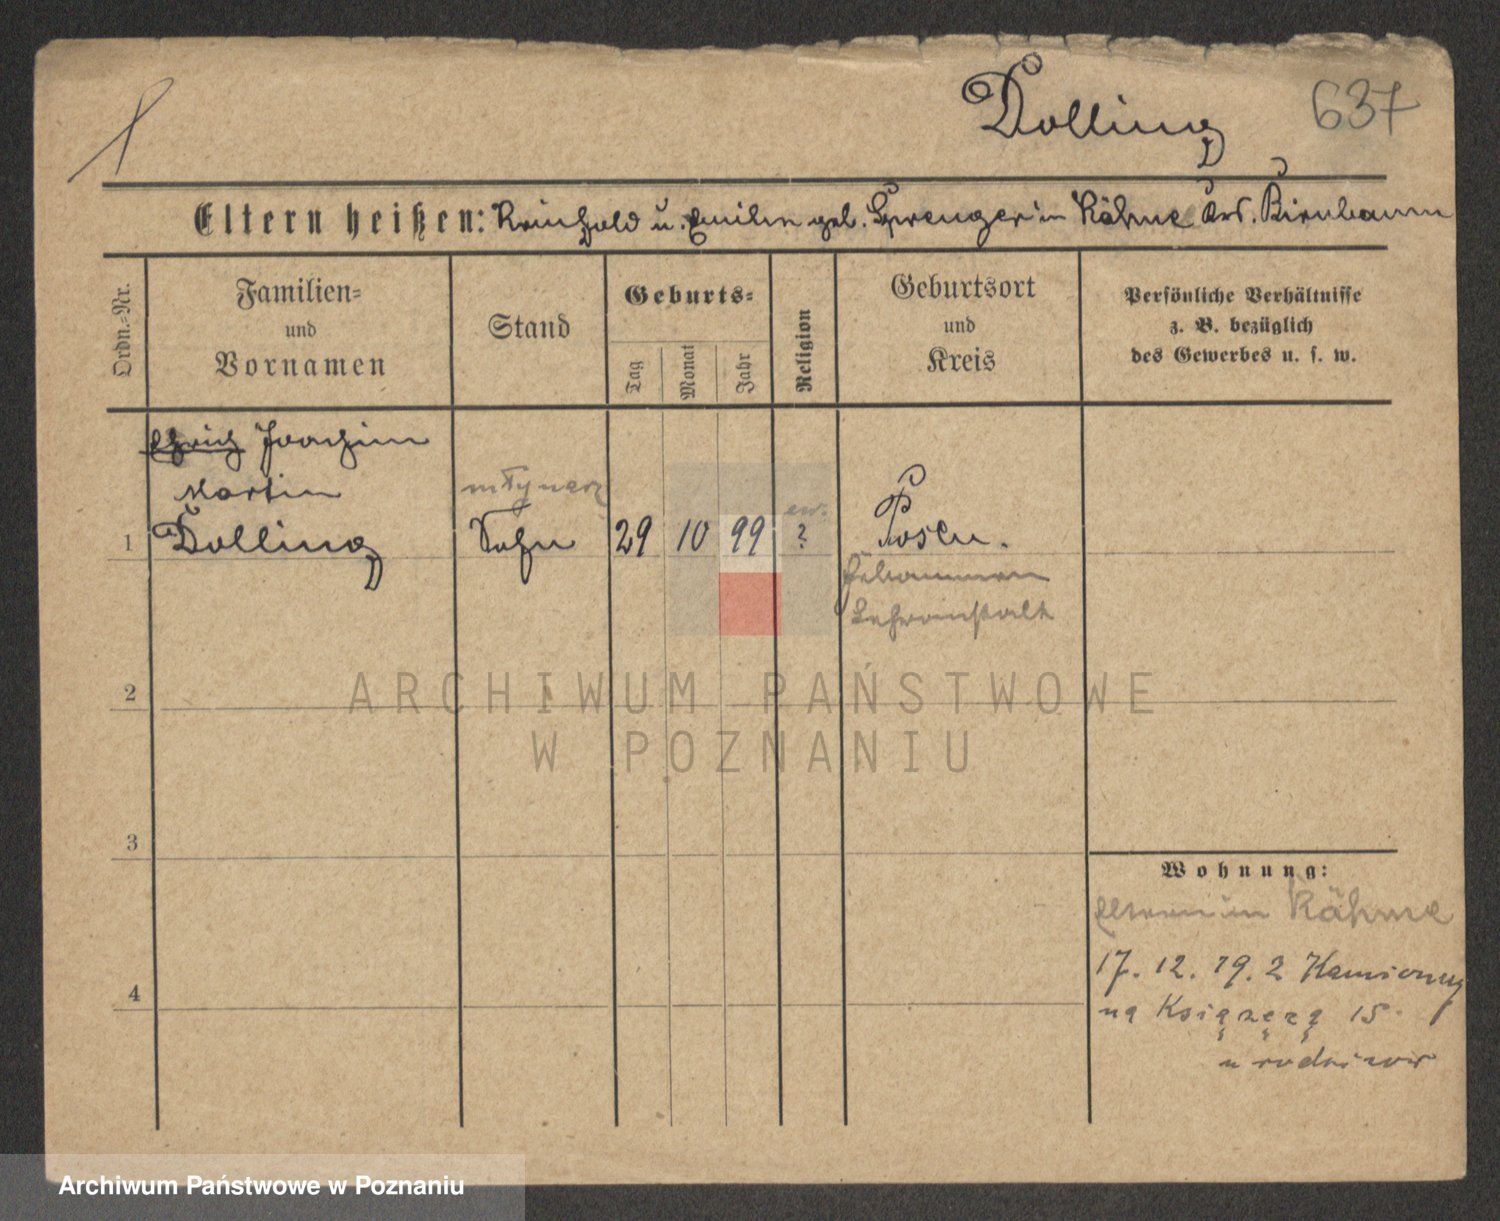 1
Dolling
637
Eltern heißen: Reinhold u. Emilie geb. Sprenger in Kähme Krs. Birnbaum
Ordn.-Nr.
Familien-
und
Vornamen
Stand
Geburts-
Tag
Monat
Jahr
Religion
Geburtsort
und
Kreis
Persönliche Verhältnisse
z. B. bezüglich
des Gewerbes u. s. w.
Joachim
Martin
młynarz
ew.
1 Dolling Sohn 29 10 99 ? Posen.
Hebammen
Lehranstalt
2
3
4
Wohnung:
Eltern in Kähme
17. 12. 19. z Kamionny
na Książęcą 15
u rodziców
ARCHIWUM PAŃSTWOWE
W POZNANIU
Archiwum Państwowe w Poznaniu